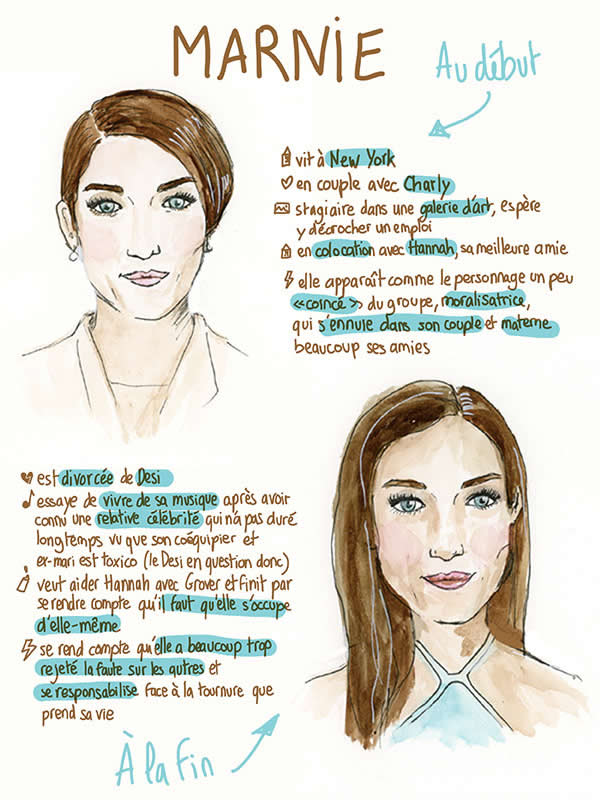 MARNIE
Au début
vit à New York
en couple avec Charly
stagiaire dans une galerie d'art, espère
y décrocher un emploi
en colocation avec Hannah, sa meilleure amie
elle apparaît comme le personnage un peu
«coincé» du groupe, moralisatrice,
qui s'ennuie dans son couple et materne
beaucoup ses amies
est divorcée de Desi
essaye de vivre de sa musique après avoir
connu une relative célébrité qui n'a pas duré
longtemps vu que son coéquipier et
ex-mari est toxico (le Desi en question donc)
veut aider Hannah avec Grover et finit par
se rendre compte qu'il faut qu'elle s'occupe
d'elle-même
se rend compte qu'elle a beaucoup trop
rejeté la faute sur les autres et
se responsabilise face à la tournure que
prend sa vie
À la fin